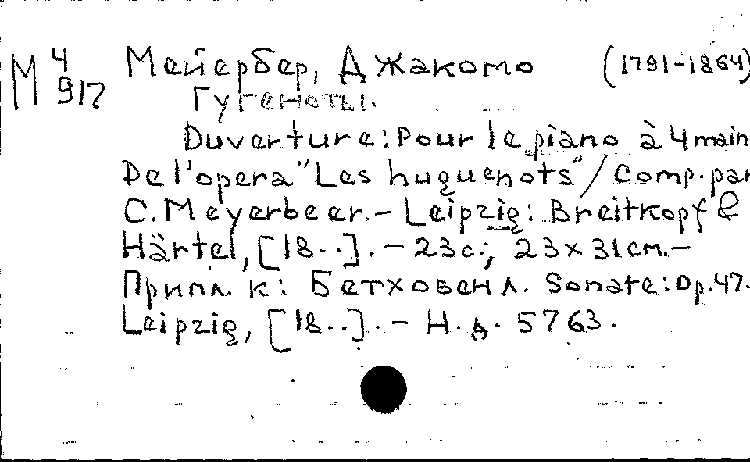 М 4/917 Мейербер, Джакомо (1791-1864)
Гугеноты.
Ouverture: Pour le piano à 4 main
De l'opera "Les huguenots" / Comp. par
C. Meyerbeer. - Leipzig: Breitkopf &
Härtel, [18..]. - 23 с.; 23 x 31 см. -
Припл. к: Бетховен Л. Sonate: Op. 47.
Leipzig, [18..]. - Н. д. 5763.